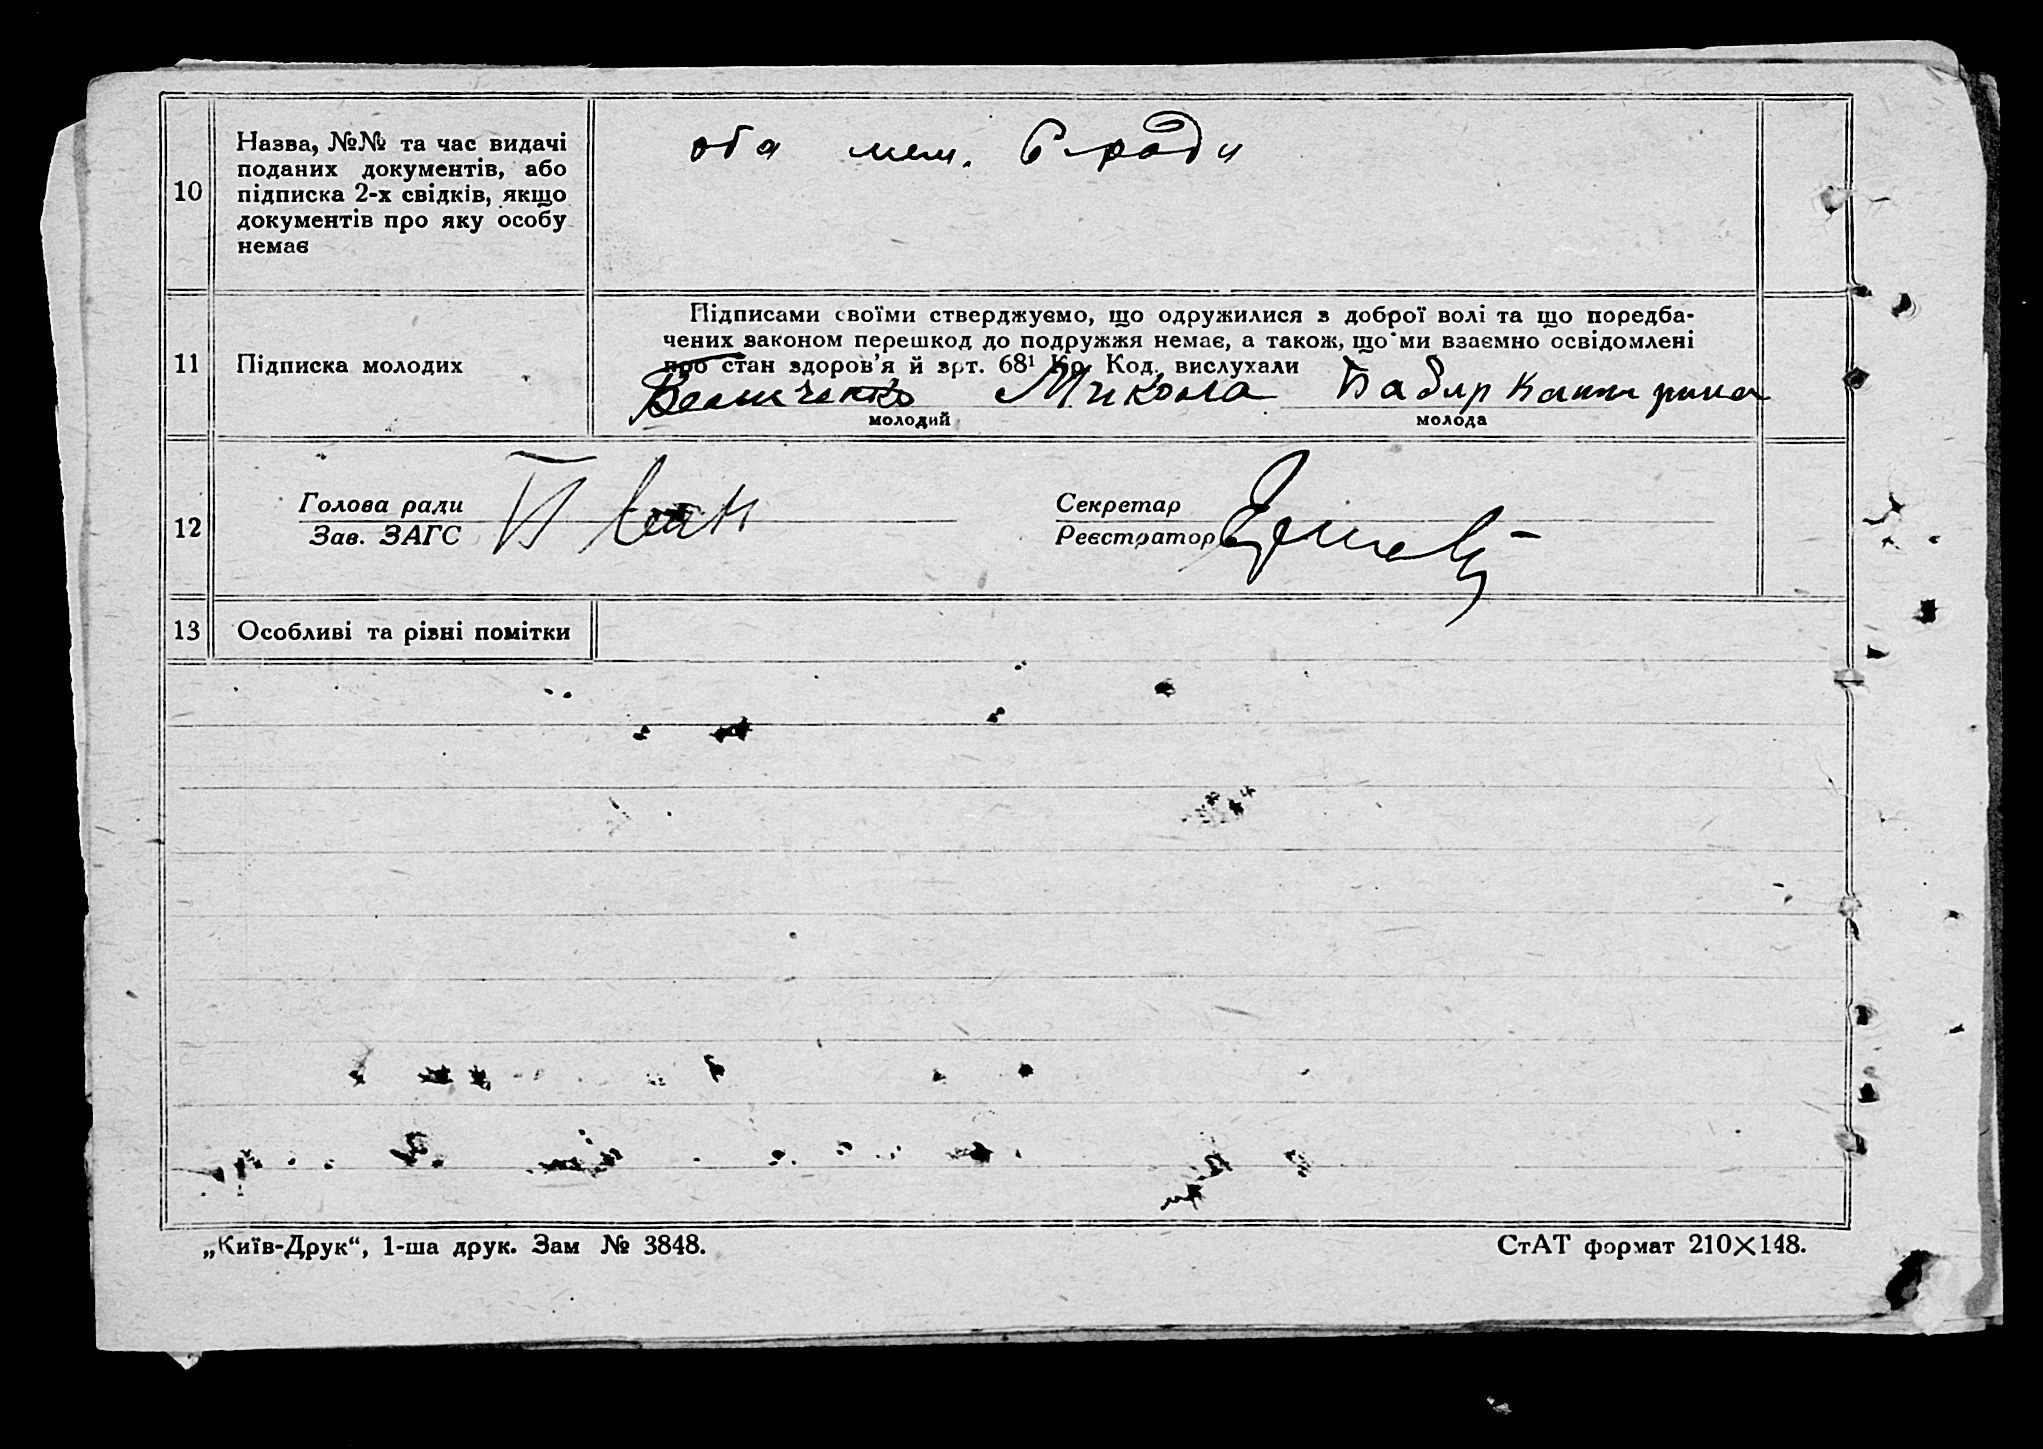 10
Назва, №№ та час видачі
поданих документів, або
підписка 2-х свідків, якщо
документів про яку особу
немає
оба меш. С-ради
11
Підписка молодих
Підписами своїми стверджуємо, що одружилися з доброї волі та що поредба-
чених законом перешкод до подружжя немає, а також, що ми взаємно освідомлені
про стан здоров'я й арт. 68¹ Кр. Код. вислухали
Микола
молодий
молода
12
Голова ради
Зав. ЗАГС
Секретар
Реєстратор
13
Особливі та різні помітки
„Київ-Друк“, 1-ша друк. Зам № 3848.
СтАТ формат 210×148.